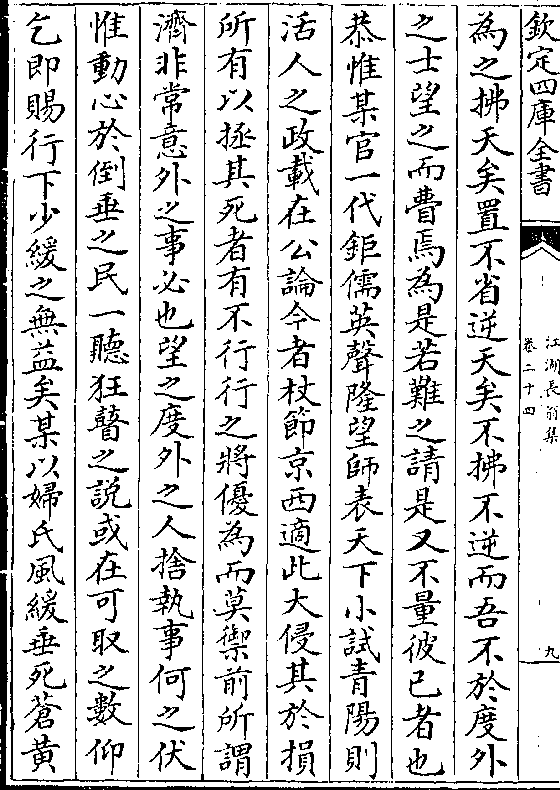 欽定四庫全書
江湖長翁集
卷二十四
九
為之拂天矣置不省逆天矣不拂不逆而吾不於度外
之士望之而瞢焉為是若難之請是又不量彼已者也
恭惟某官一代鉅儒英聲隆望師表天下小試青陽則
活人之政載在公論今者杖節京西適此大侵其於損
所有以拯其死者有不行行之將優為而莫禦前所謂
濟非常意外之事必也望之度外之人捨執事何之伏
惟動心於倒垂之民一聽狂瞽之說或在可取之數仰
乞即賜行下少緩之無益矣某以婦氏風緩垂死蒼黃